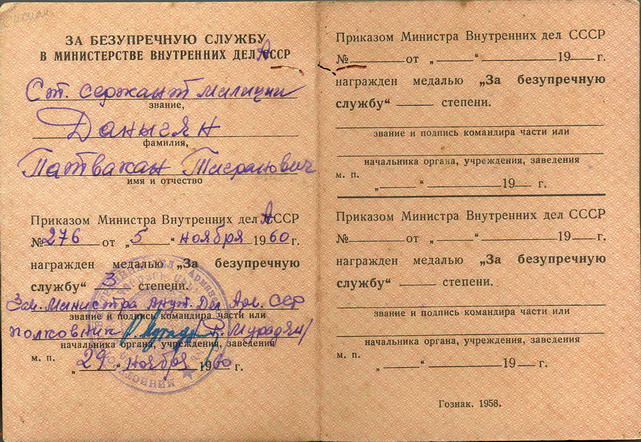 ЗА БЕЗУПРЕЧНУЮ СЛУЖБУ
В МИНИСТЕРСТВЕ ВНУТРЕННИХ ДЕЛ АССР
Ст. сержант милиции
звание,
Даныгян
фамилия,
Патвакан Тигранович
имя и отчество
Приказом Министра Внутренних дел АССР
№ 276 от „5“ ноября 1960 г.
награжден медалью „За безупречную
службу“ 3 степени.
Зам. Министра Внут. Дел Арм. ССР
звание и подпись командира части или
полковник /Мурадян/
начальника органа, учреждения, заведения
м. п. „29“ ноября 1960 г.
Приказом Министра Внутренних дел СССР
№ от „ “ 19 г.
награжден медалью „За безупречную
службу“ степени.
звание и подпись командира части или
начальника органа, учреждения, заведения
м. п.
„ “ 19 г.
Приказом Министра Внутренних дел СССР
№ от „ “ 19 г.
награжден медалью „За безупречную
службу“ степени.
звание и подпись командира части или
начальника органа, учреждения, заведения
м. п.
„ “ 19 г.
Гознак. 1958.